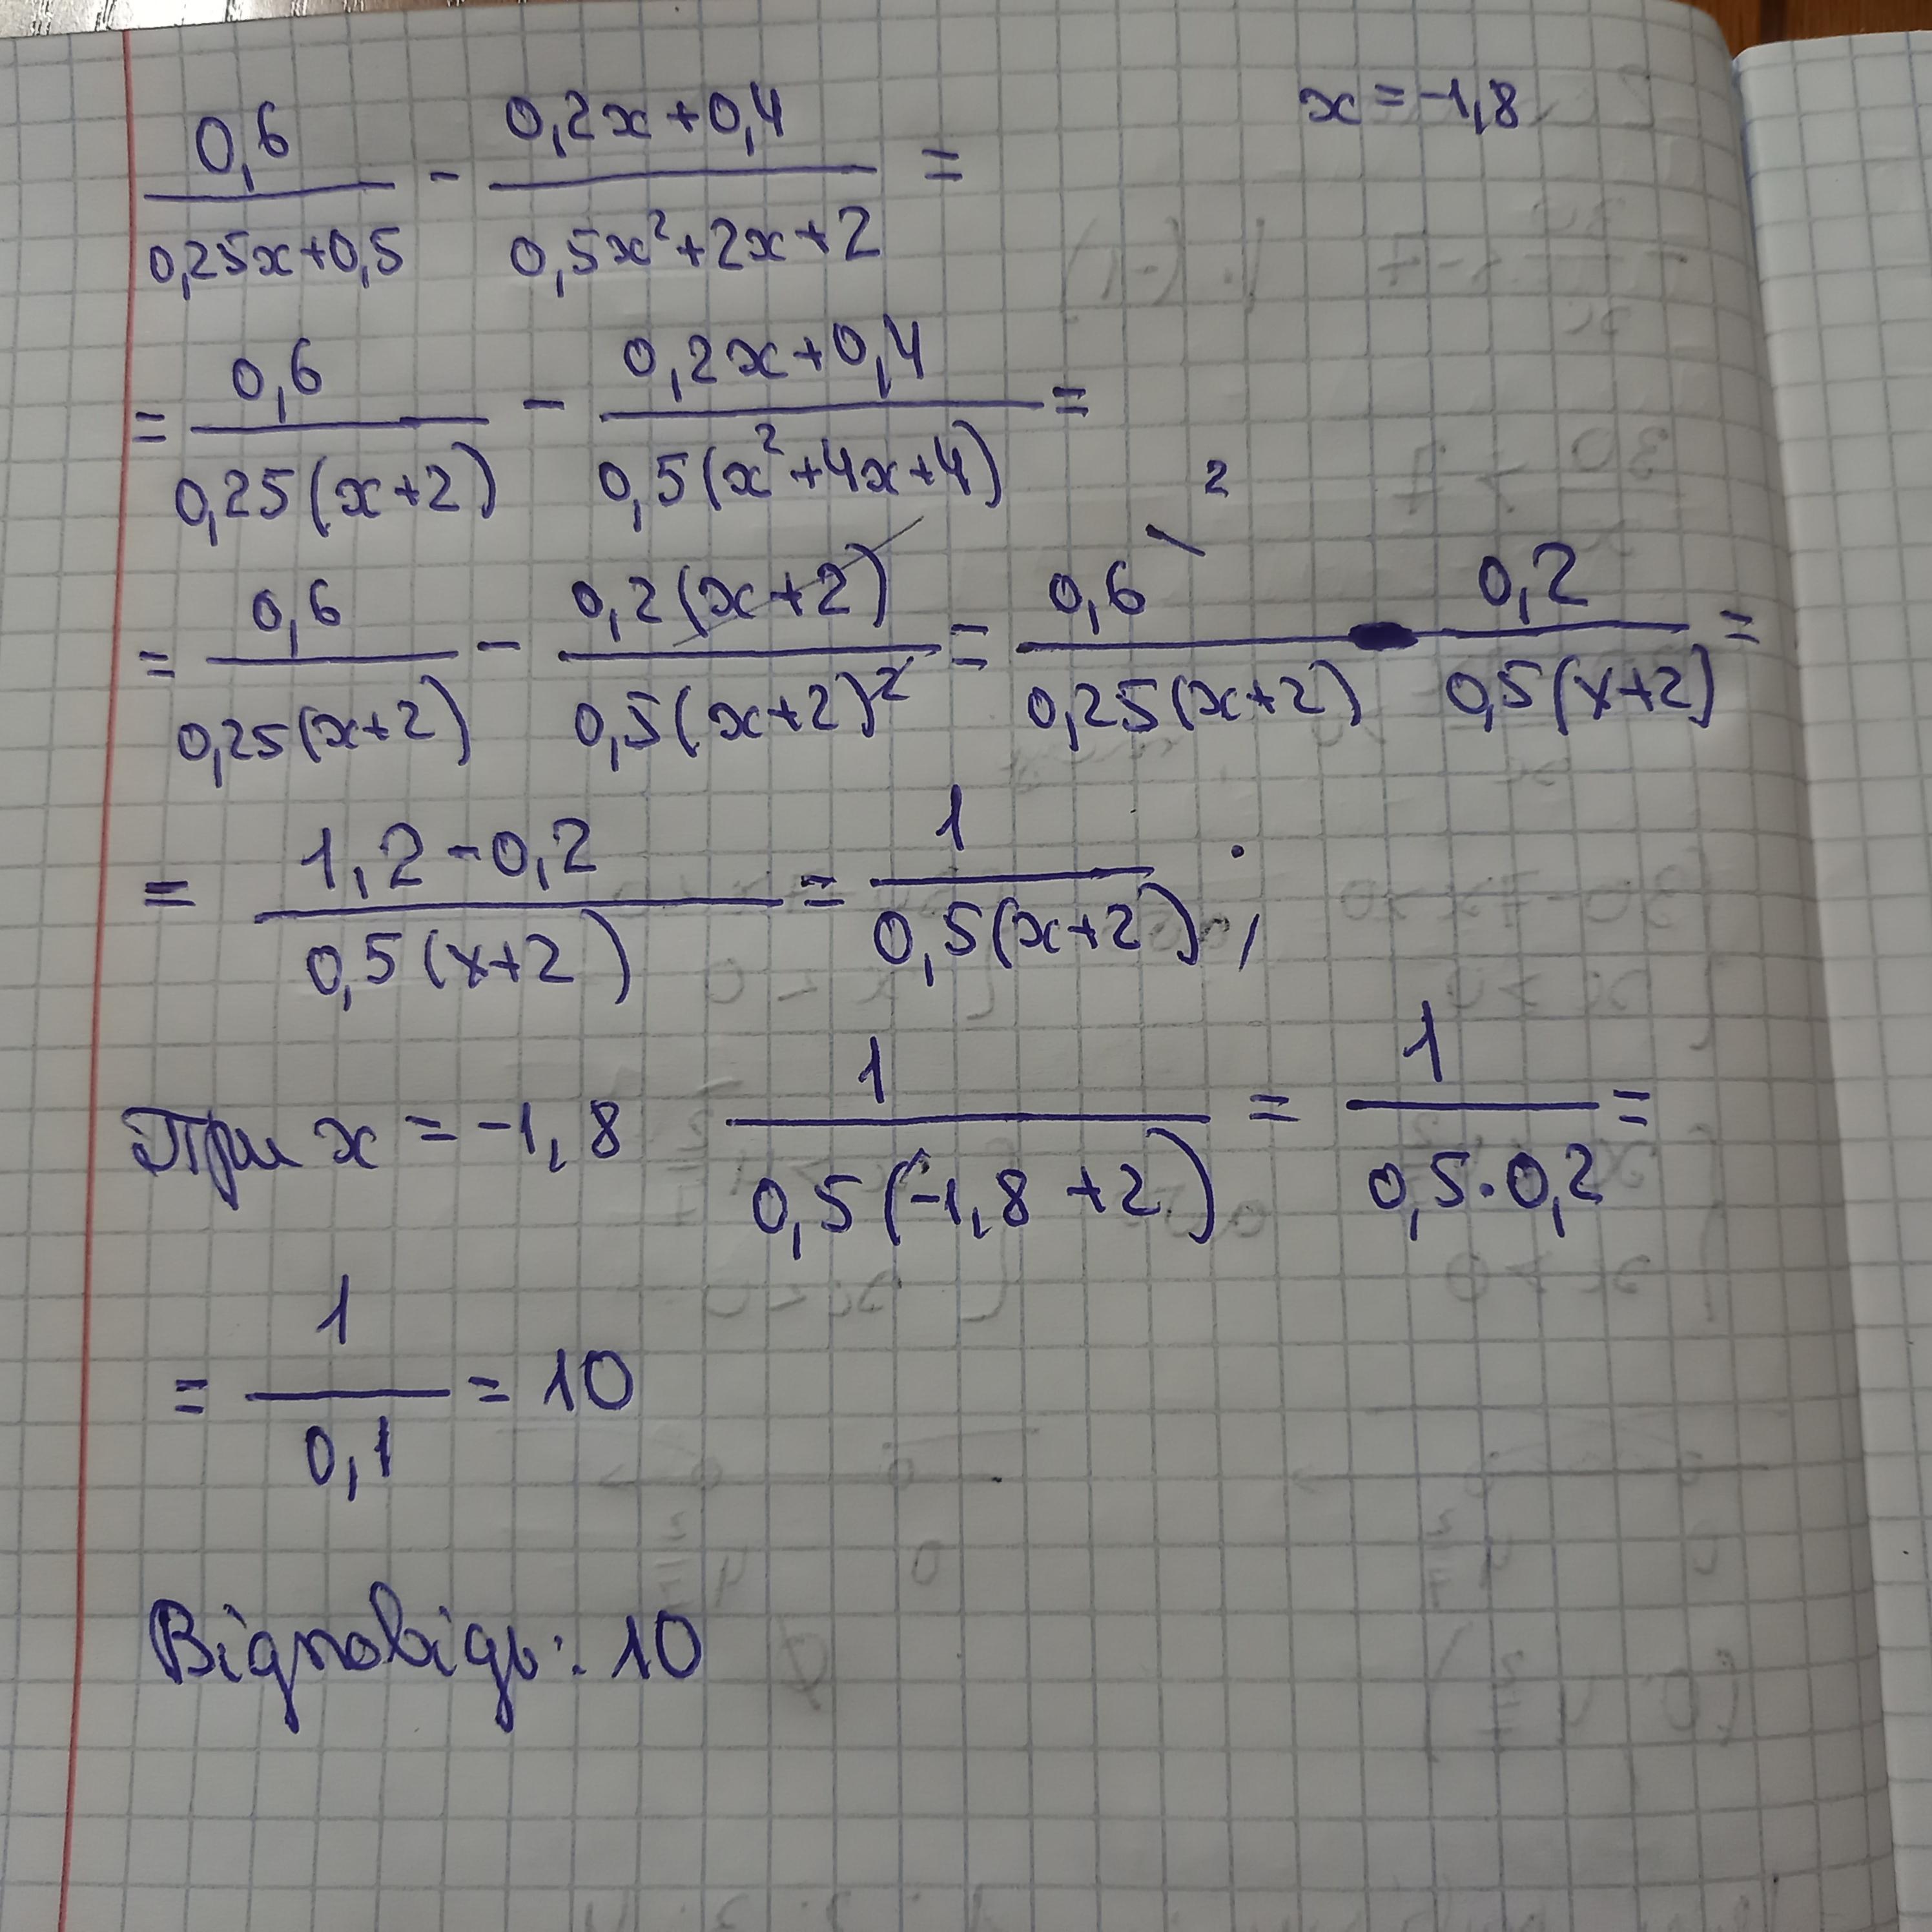 0,6/(0,25x+0,5) - (0,2x+0,4)/(0,5x²+2x+2) = x = -1,8
= 0,6/(0,25(x+2)) - (0,2x+0,4)/(0,5(x²+4x+4)) =
= 0,6/(0,25(x+2)) - 0,2(x+2)/(0,5(x+2)²) = 0,6\²/(0,25(x+2)) - 0,2/(0,5(x+2)) =
= (1,2-0,2)/(0,5(x+2)) = 1/(0,5(x+2)) ;
При x = -1,8 1/(0,5(-1,8+2)) = 1/(0,5·0,2) =
= 1/0,1 = 10
Відповідь: 10